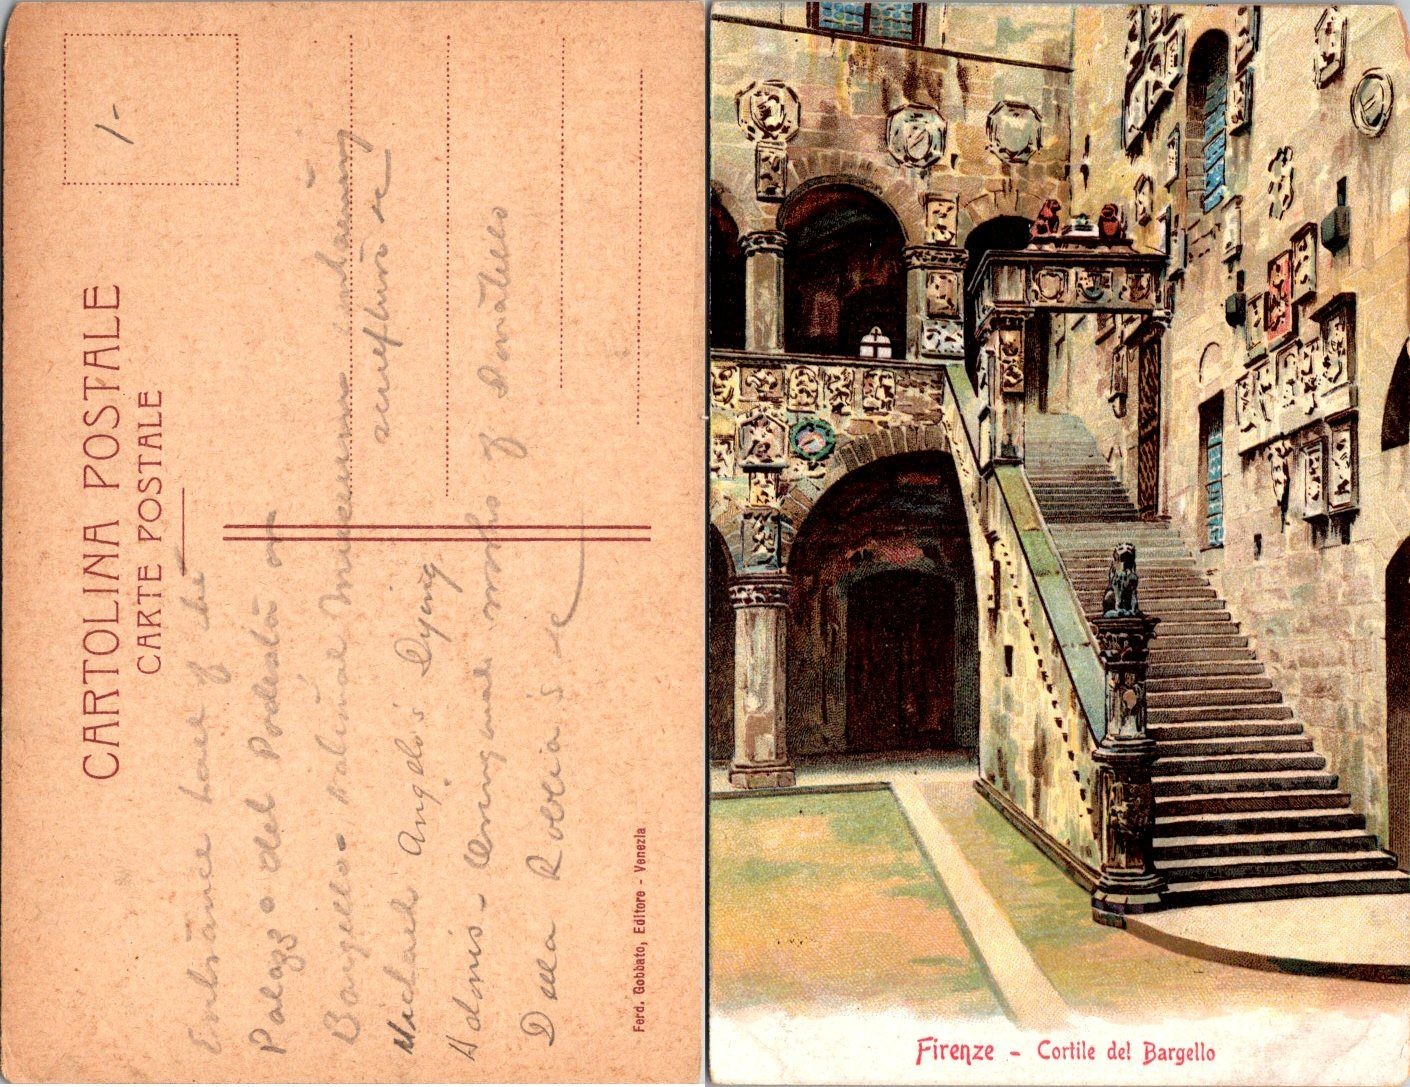 CARTOLINA POSTALE
CARTE POSTALE
1-
Entrance hall of the
Palazzo del Podestà or
Bargello - National museum containing
sculpture &c
Michael Angelo's Dying
Adonis - Original works of Donatello
Della Robbia's &c
Ferd. Gobbato, Editore - Venezia
Firenze - Cortile del Bargello